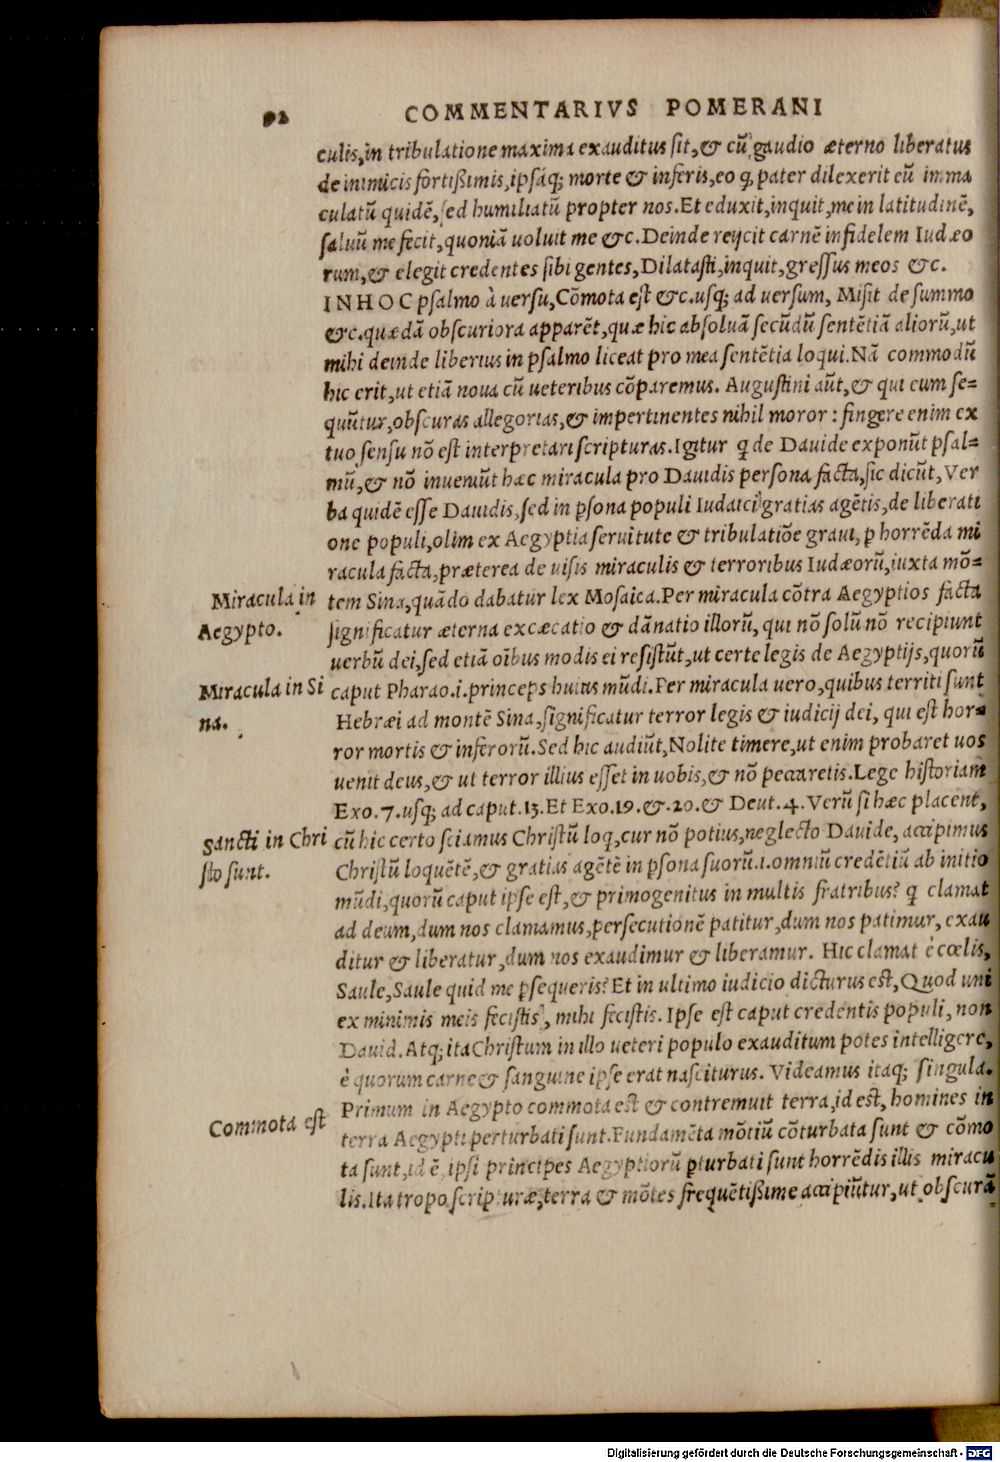 92
COMMENTARIVS POMERANI
culis,in tribulatione maxima exauditus sit,& cũ gaudio æterno liberatus
de inimicis fortißimis,ipsáq; morte & inferis,eo q̃ pater dilexerit eũ imma
culatũ quidẽ,sed humiliatũ propter nos.Et eduxit,inquit,me in latitudinẽ,
saluũ me fecit,quoniã uoluit me &c.Deinde reijcit carnẽ infidelem Iudæo
rum,& elegit credentes sibi gentes,Dilatasti,inquit,gressus meos &c.
IN HOC psalmo à uersu,Cõmota est &c.usq; ad uersum, Misit de summo
&c.quædã obscuriora apparẽt,quæ hic absoluã secũdũ sentẽtiã aliorũ,ut
mihi deinde liberius in psalmo liceat pro mea sentẽtia loqui.Nã commodũ
hic erit,ut etiã noua cũ ueteribus cõparemus. Augustini aũt,& qui eum se=
quũtur,obscuras allegorias,& impertinentes nihil moror : fingere enim ex
tuo sensu nõ est interpretari scripturas.Igitur q̃ de Dauide exponũt psal=
mũ,& nõ inueniũt hæc miracula pro Dauidis persona facta,sic dicũt,Ver
ba quidẽ esse Dauidis,sed in p̃sona populi Iudaici gratias agẽtis,de liberati
one populi,olim ex Aegyptia seruitute & tribulatiõe graui, p horrẽda mi
racula facta,præterea de uisis miraculis & terroribus Iudæorũ,iuxta mõ=
Miracula in Aegypto.
tem Sina,quãdo dabatur lex Mosaica.Per miracula cõtra Aegyptios facta
significatur æterna excæcatio & dãnatio illorũ, qui nõ solũ nõ recipiunt
uerbũ dei,sed etiã oĩbus modis ei resistũt,ut certe legis de Aegyptijs,quorũ
Miracula in Si
na.
caput Pharao.i.princeps huius mũdi.Per miracula uero,quibus territi sunt
Hebræi ad montẽ Sina,significatur terror legis & iudicij dei, qui est hor=
ror mortis & inferorũ.Sed hic audiũt,Nolite timere,ut enim probaret uos
uenit deus,& ut terror illius esset in uobis,& nõ peccaretis.Lege historiam
Exo.7.usq; ad caput.13.Et Exo.19.&.20.& Deut.4.Verũ si hæc placent,
Sancti in Chri
sto sunt.
cũ hic certo sciamus Christũ loq,cur nõ potius,neglecto Dauide, accipimus
Christũ loquẽtẽ,& gratias agẽtẽ in p̃sona suorũ.i.omniũ credẽtiũ ab initio
mũdi,quorũ caput ipse est,& primogenitus in multis fratribus? q clamat
ad deum,dum nos clamamus,persecutionẽ patitur,dum nos patimur, exau
ditur & liberatur,dum nos exaudimur & liberamur. Hic clamat è cœlis,
Saule,Saule quid me p̃sequeris? Et in ultimo iudicio dicturus est,Quod uni
ex minimis meis fecistis, mihi fecistis.Ipse est caput credentis populi, non
Dauid.Atq; ita Christum in illo ueteri populo exauditum potes intelligere,
è quorum carne & sanguine ipse erat nasciturus. Videamus itaq; singula.
Commota est
Primum in Aegypto commota est & contremuit terra,id est, homines in
terra Aegypti perturbati sunt.Fundamẽta mõtiũ cõturbata sunt & cõmo
ta sunt,id ẽ, ipsi principes Aegyptiorũ pturbati sunt horrẽdis illis miracu
lis.Ita tropo scripturæ,terra & mõtes frequẽtißime accipiũtur,ut obscurã
Digitalisierung gefördert durch die Deutsche Forschungsgemeinschaft - DFG